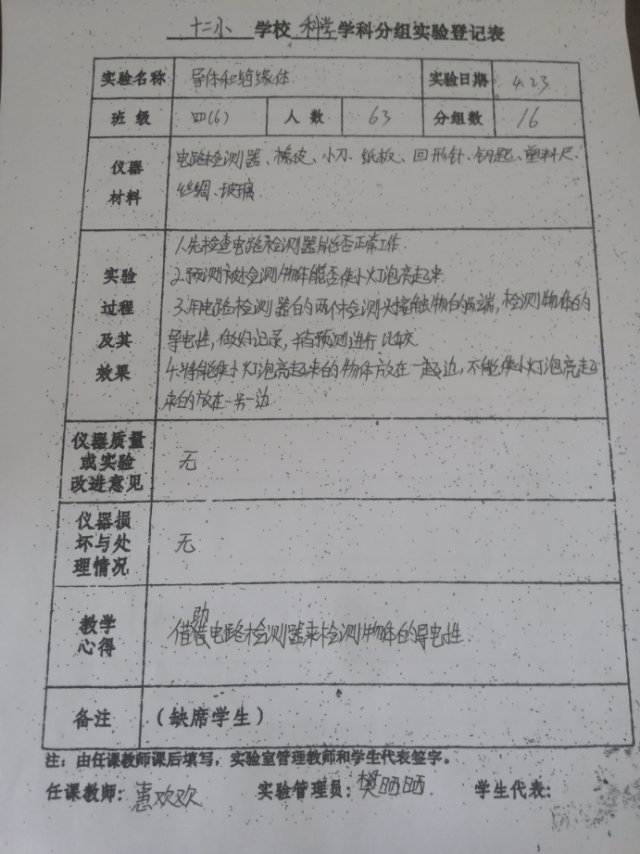 十二小 学校 科学 学科分组实验登记表
实验名称 导体和绝缘体 实验日期 4.23
班级 四(6) 人数 63 分组数 16
仪器材料 电路检测器、橡皮、小刀、纸板、回形针、钥匙、塑料尺、
丝绸、玻璃
实验过程及其效果
1.先检查电路检测器能否正常工作.
2.预测被检测物体能否使小灯泡亮起来.
3.用电路检测器的两个检测头接触物体的两端,检测物体的
导电性,做好记录,并与预测进行比较
4.将能使小灯泡亮起来的物体放在一边,不能使小灯泡亮起
来的放在另一边
仪器质量或实验改进意见 无
仪器损坏与处理情况 无
教学心得 借助电路检测器来检测物体的导电性.
备注 (缺席学生)
注:由任课教师课后填写,实验室管理教师和学生代表签字。
任课教师:惠欢欢 实验管理员:樊晒晒. 学生代表: